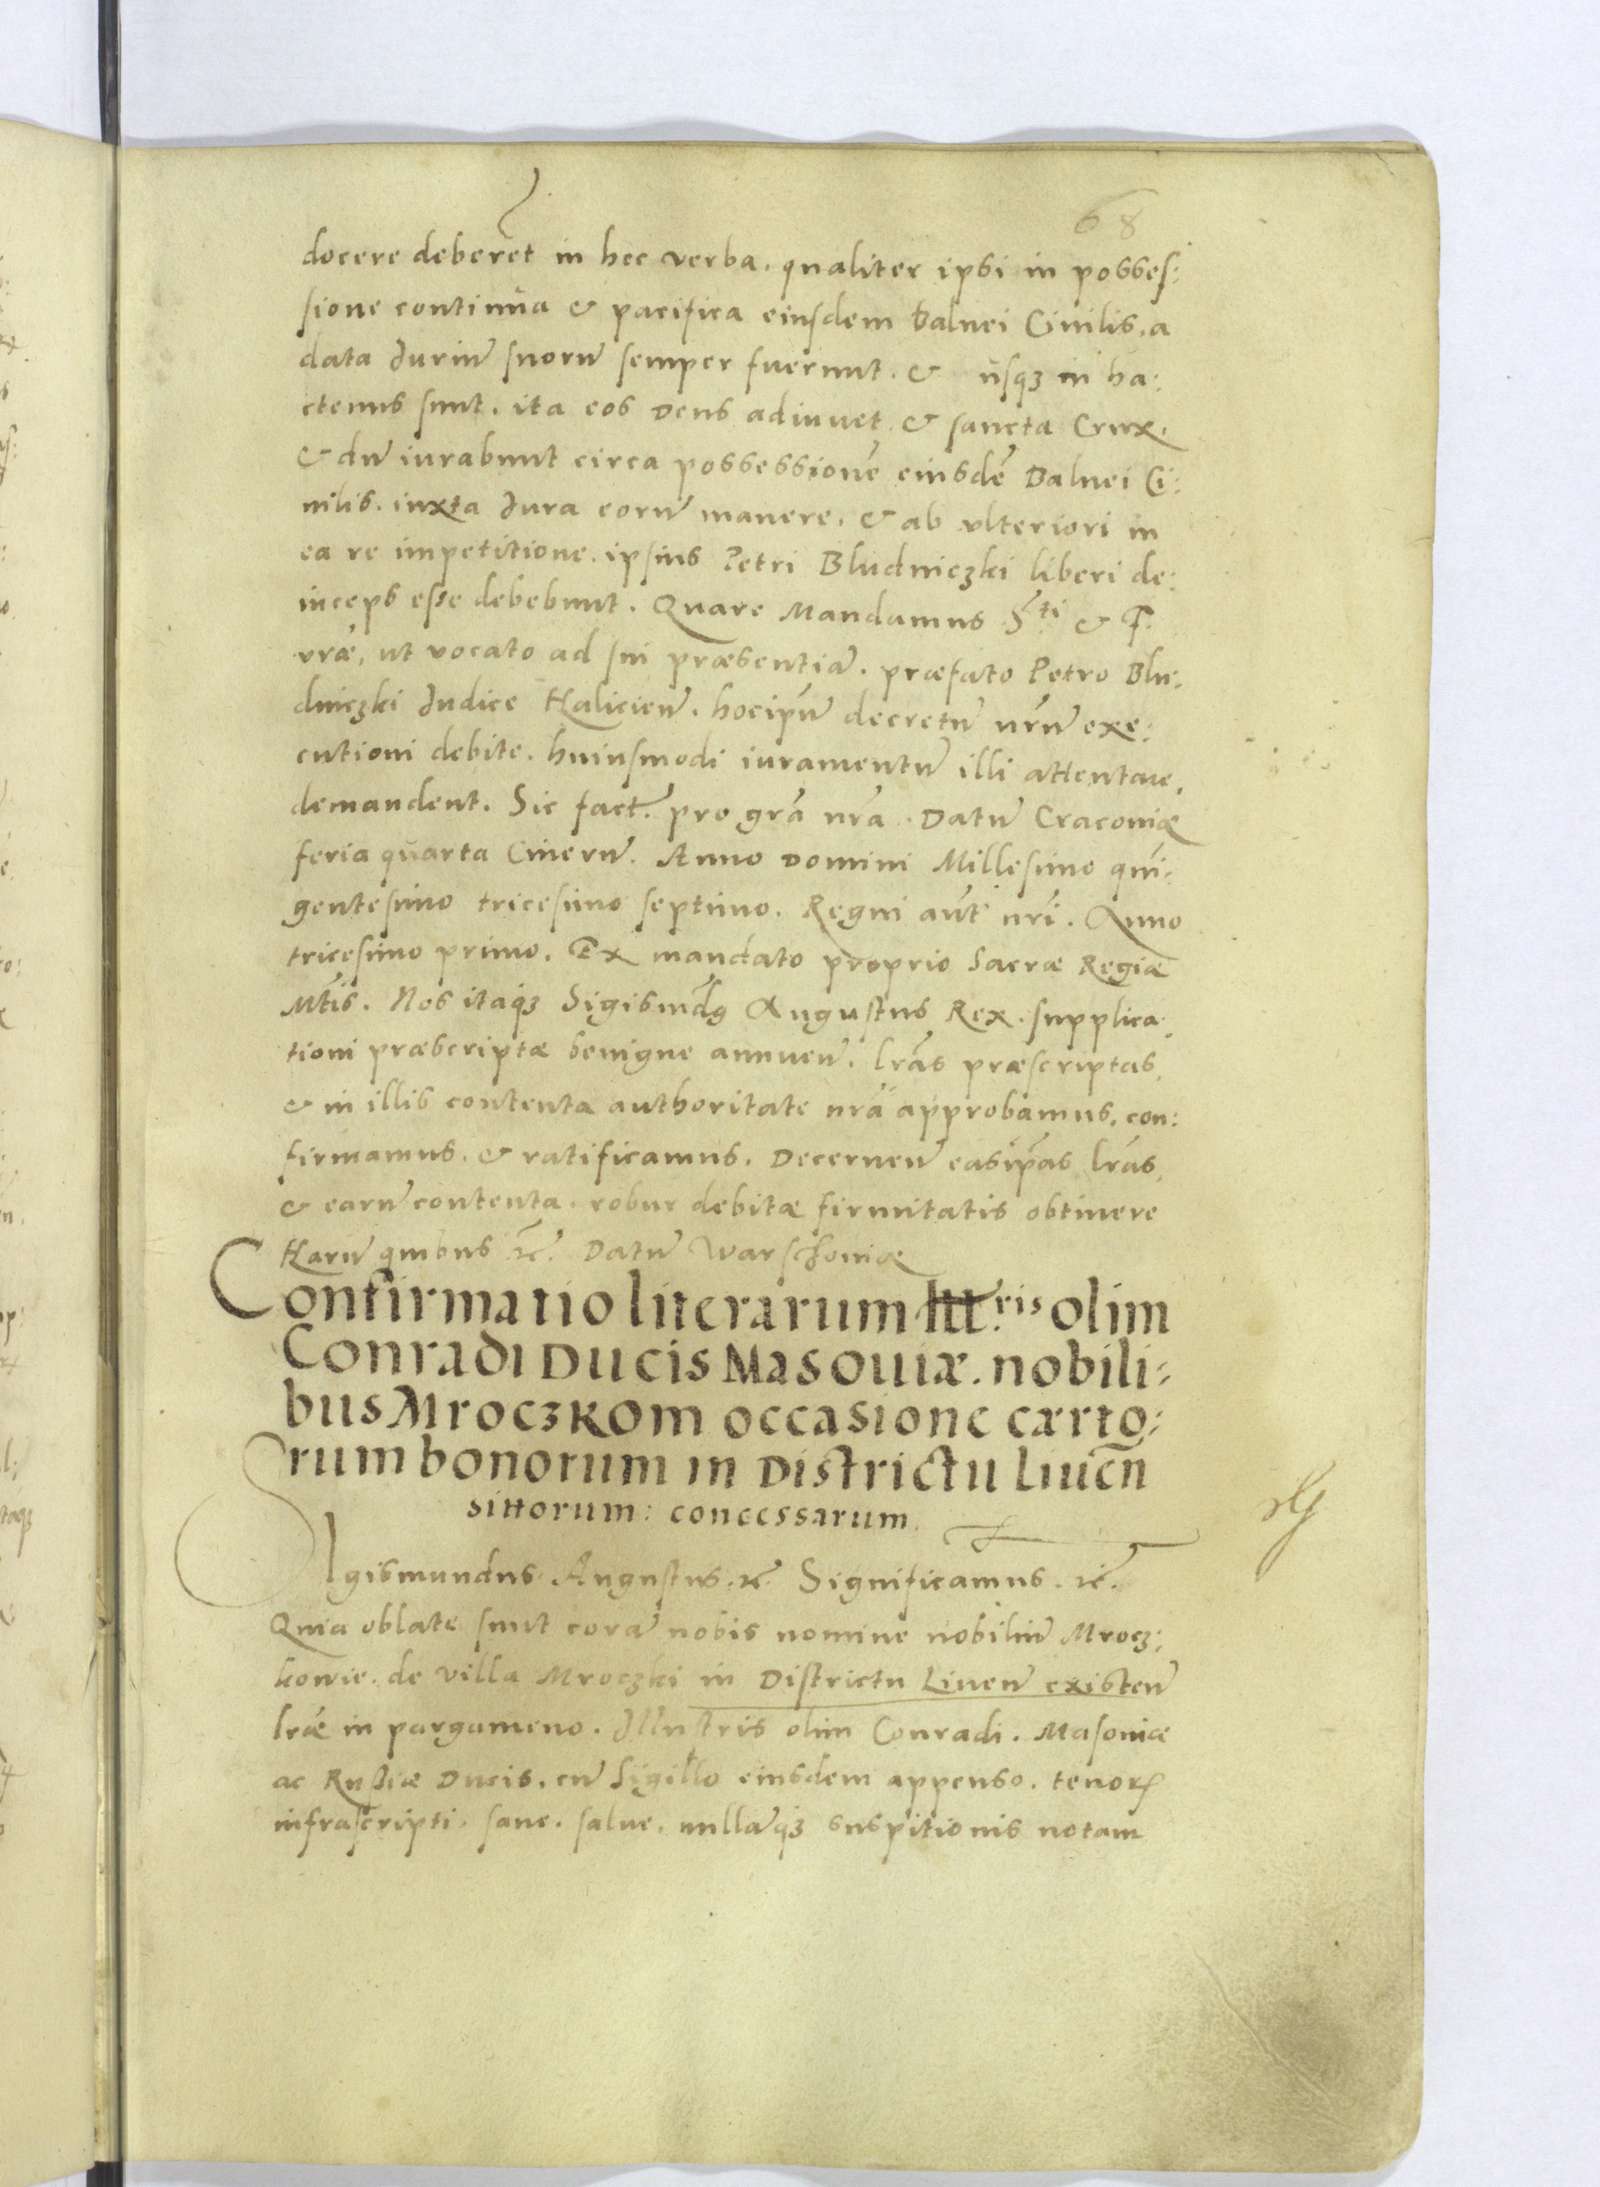 68
docere deberēt in hec verba. qualiter ipsi in posses:
sione continŭa & pacifica eiusdem balnei Ciuilis, a
data Juriū suorū semper fuerunt. & usqꝫ in ha:
ctenus sunt. ita eos Deus adiuuet & sancta Crux.
& dū iurabunt circa possessionē eiusdē Balnei Ci:
uilis. iuxta Jura eorū manere, & ab vlteriori in
ea re impetitione. ipsius Petri Bludniczki liberi de:
inceps esse debebunt. Quare Mandamus S.ti & F.
vræ, ut vocato ad sui præsentiā. præfato Petro Blu:
dniczki Judice Halicien̄. hocip̄ū decretū nr̄ū exe:
cutioni debite. huiusmodi iuramentū illi attentare,
demandent. Sic fact̄. pro grā nrā. Datū Cracouiæ
feria quarta Cinerū. Anno Domini Millesimo quī:
gentesimo tricesimo septimo. Regni aūt nr̄i. Anno
tricesimo primo. Ex mandato proprio Sacræ Regiæ
Mtis. Nos itaqꝫ Sigismūdꝰ Augustus Rex. supplica:
tioni præscriptæ benigne annuen̄. lrās præscriptas,
& in illis contenta authoritate nrā approbamus, con:
firmamus. & ratificamus. Decernen̄ easip̄as lrās,
& earū contenta. robur debitæ firmitatis obtinere
Harū quibus ⁊c̄. Datū Warschouiæ
Confirmatio literarum Ill.ris olim
Conradi Ducis Masouiæ. nobili:
bus Mroczkom occasione cærto:
rum bonorum in Districtu Liuen̄
sittorum: concessarum.
SIgismundus Augustus. ⁊c̄. Significamus. ⁊c̄.
Quia oblate sunt corā nobis nomine nobiliū Mrocz:
kowie. de villa Mroczki in Districtu Liuen̄ existen̄
lrǣ in pargameno. Illustris olim Conradi. Masouiæ
ac Russiæ Ducis. cū Sigillo eiusdem appenso. tenorꝭ
infrascripti. sane. salue. nullāqꝫ suspitionis notam